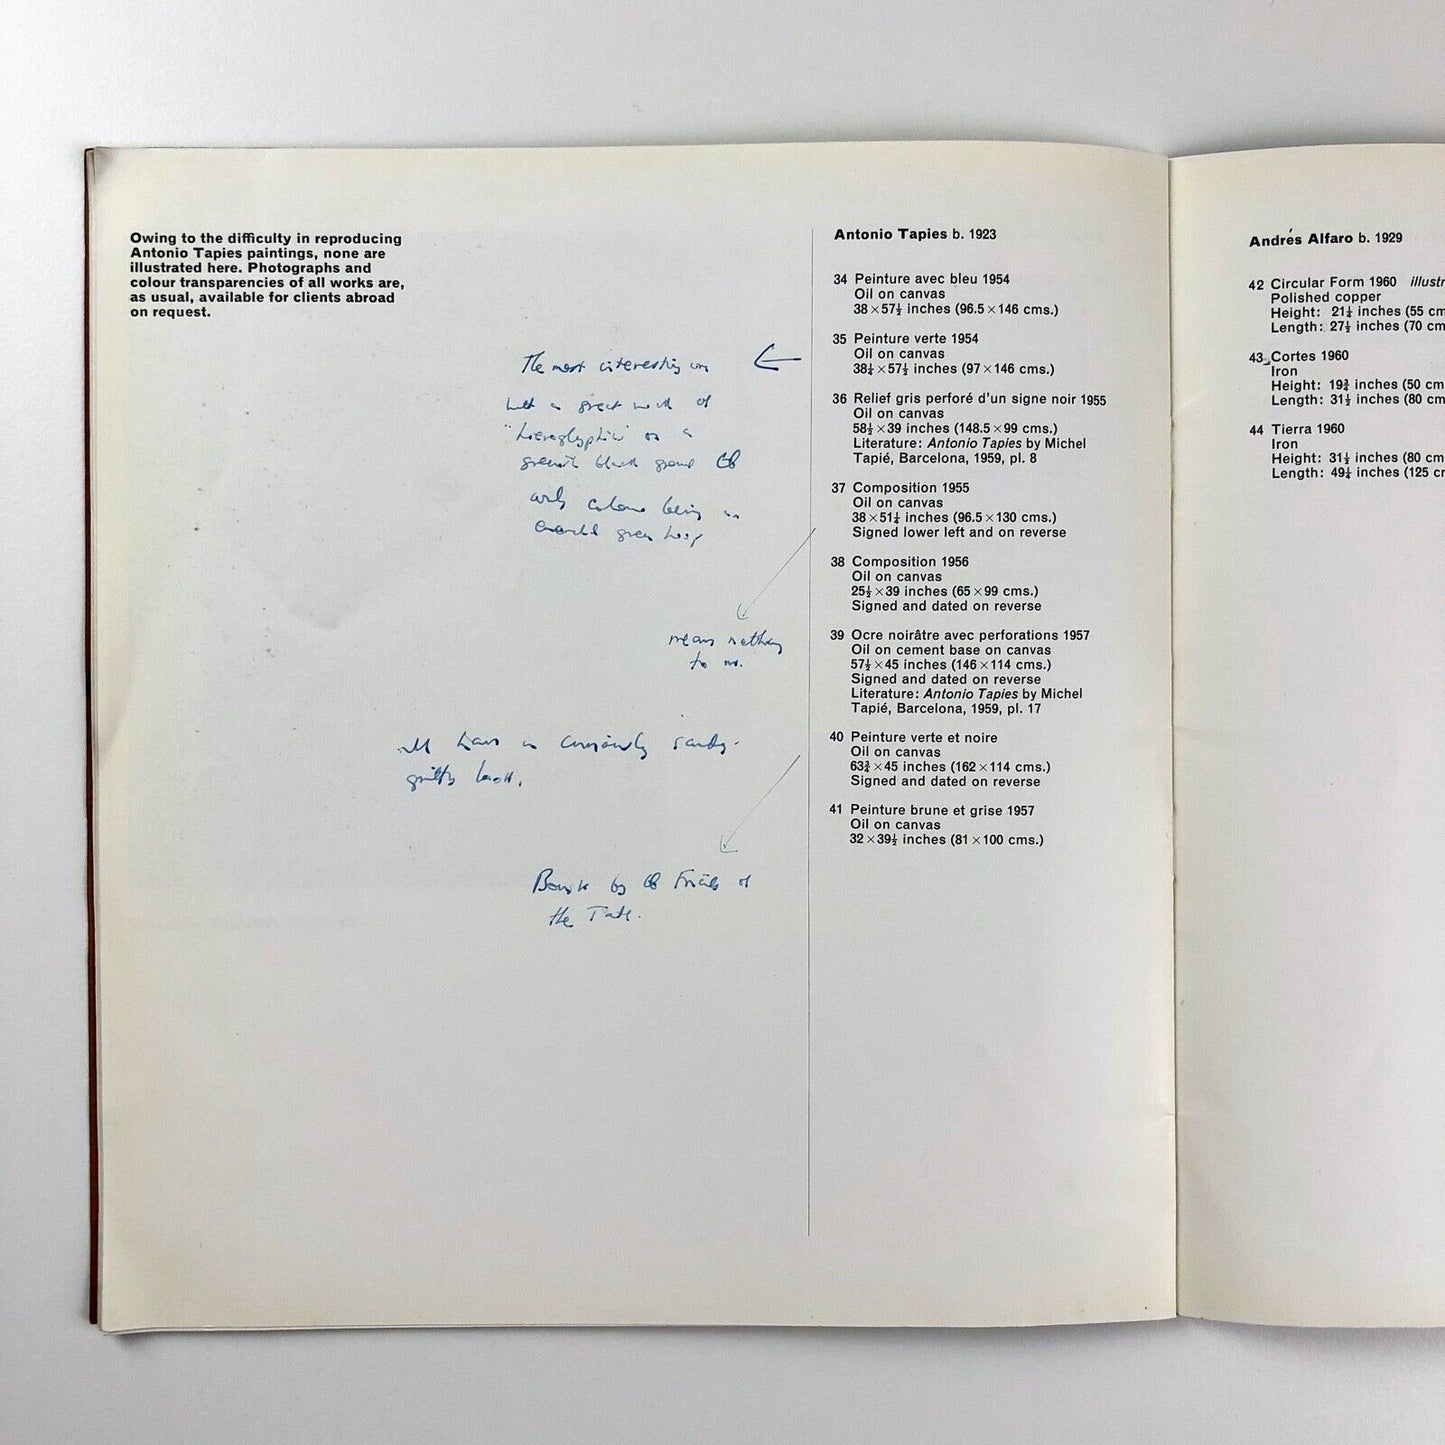 Owing to the difficulty in reproducing
Antonio Tapies paintings, none are
illustrated here. Photographs and
colour transparencies of all works are,
as usual, available for clients abroad
on request.
The most interesting
a great work of
on a
black
only colour being an
emerald green
means nothing
to me.
all have a curiously sandy-
gritty look.
Bought by the Friends of
the Tate.
Antonio Tapies b. 1923
34 Peinture avec bleu 1954
Oil on canvas
38 × 57½ inches (96.5 × 146 cms.)
35 Peinture verte 1954
Oil on canvas
38¼ × 57½ inches (97 × 146 cms.)
36 Relief gris perforé d'un signe noir 1955
Oil on canvas
58½ × 39 inches (148.5 × 99 cms.)
Literature: Antonio Tapies by Michel
Tapié, Barcelona, 1959, pl. 8
37 Composition 1955
Oil on canvas
38 × 51¼ inches (96.5 × 130 cms.)
Signed lower left and on reverse
38 Composition 1956
Oil on canvas
25½ × 39 inches (65 × 99 cms.)
Signed and dated on reverse
39 Ocre noirâtre avec perforations 1957
Oil on cement base on canvas
57½ × 45 inches (146 × 114 cms.)
Signed and dated on reverse
Literature: Antonio Tapies by Michel
Tapié, Barcelona, 1959, pl. 17
40 Peinture verte et noire
Oil on canvas
63¾ × 45 inches (162 × 114 cms.)
Signed and dated on reverse
41 Peinture brune et grise 1957
Oil on canvas
32 × 39½ inches (81 × 100 cms.)
Andrés Alfaro b. 1929
42 Circular Form 1960 illustr
Polished copper
Height: 21¼ inches (55 cm
Length: 27½ inches (70 cm
43 Cortes 1960
Iron
Height: 19¾ inches (50 cm
Length: 31½ inches (80 cm
44 Tierra 1960
Iron
Height: 31½ inches (80 cm
Length: 49¼ inches (125 c